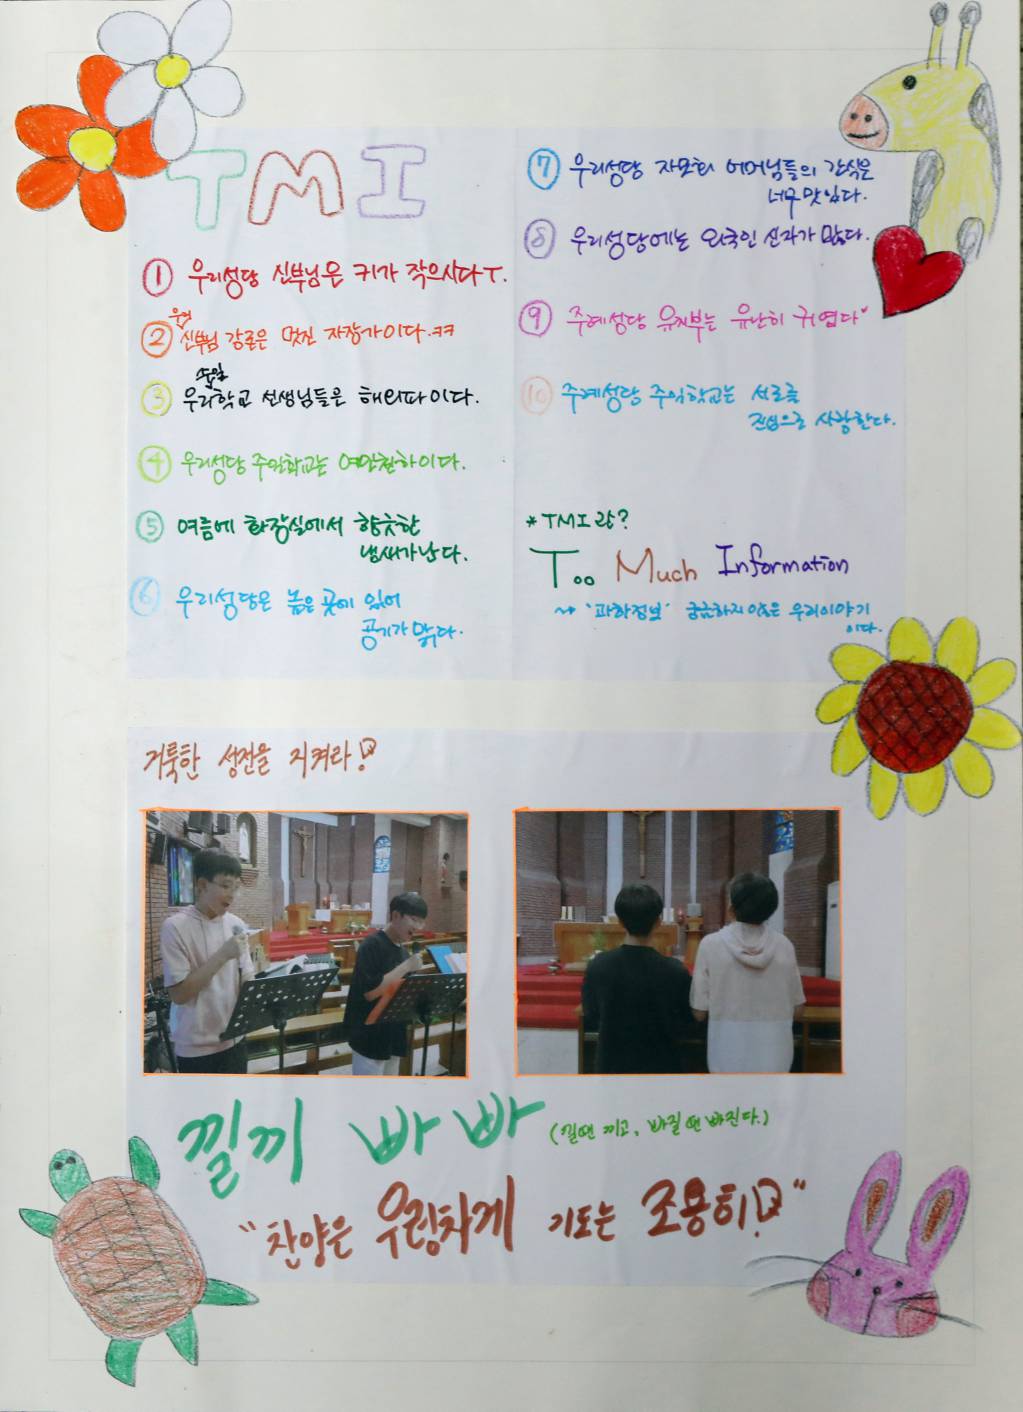 TMI
① 우리성당 신부님은 키가 작으시다ㅜ.
② 우리 신부님 강론은 멋진 자장가이다.ㅋㅋ
③ 우리 주일학교 선생님들은 해외파이다.
④ 우리성당 주일학교는 여인천하이다.
⑤ 여름에 화장실에서 향긋한
냄새가 난다.
⑥ 우리성당은 높은 곳에 있어
공기가 맑다.
⑦ 우리성당 자모회 어머님들의 간식은
너무 맛있다.
⑧ 우리성당에는 외국인 신자가 많다.
⑨ 주례성당 유치부는 유난히 귀엽다"
⑩ 주례성당 주일학교는 서로를
진심으로 사랑한다.
* TMI 란?
Too Much Information
~> '과한정보' 궁금하지 않은 우리이야기
이다.
거룩한 성전을 지켜라!
낄끼 빠빠 (낄땐 끼고, 빠질땐 빠진다.)
"찬양은 우렁차게 기도는 조용히!"